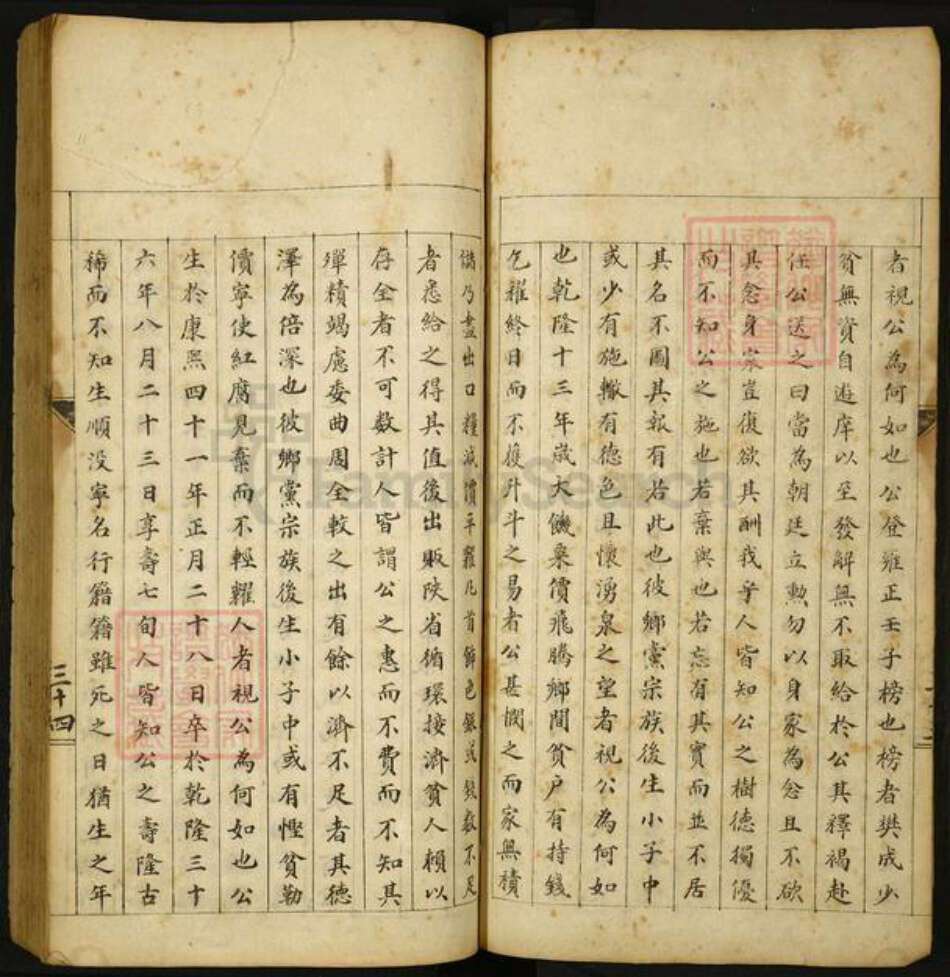 者視公為何如也公登雍正壬子榜也榜者樊成少
貧無資自遊庠以至發解無不取給於公其釋褐赴
任公送之曰當為朝廷立勲勿以身家為念且不欲
其念身家豈復欲其酬我乎人皆知公之樹德獨優
而不知公之施也若棄與也若忘有其實而並不居
其名不圖其報有若此也彼鄉黨宗族後生小子中
或少有施轍有德色且懷湧泉之望者視公為何如
也乾隆十三年歲大饑粟價飛騰鄉間貧户有持錢
乞糴終日而不獲升斗之易者公甚憫之而家無積
儲乃盡出口糧減價平糶凡首飾色銀或錢數不足
者悉給之得其值後出販陝省循環接濟貧人賴以
存全者不可數計人皆謂公之惠而不費而不知其
殫精竭慮委曲周全較之出有餘以濟不足者其德
澤為倍深也彼鄉黨宗族後生小子中或有慳貧勒
價寧使紅腐見棄而不輕糶人者視公為何如也公
生於康熙四十一年正月二十八日卒於乾隆三十
六年八月二十三日享壽七旬人皆知公之壽隆古
稀而不知生順没寧名行籍籍雖死之日猶生之年
三十四
FamilySearch